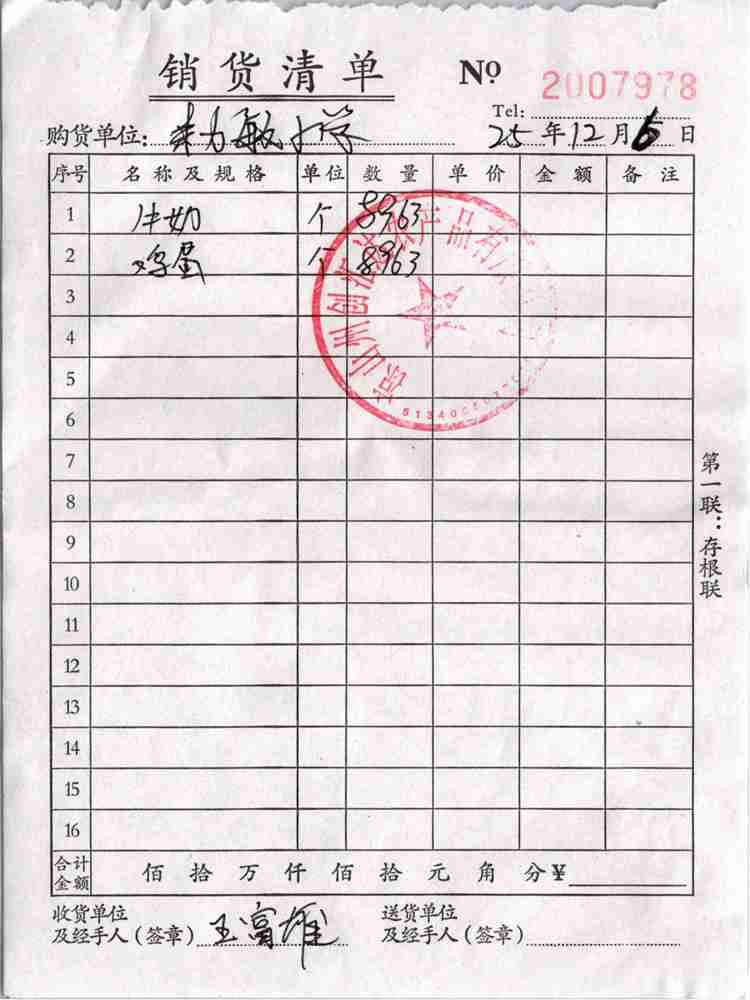 销货清单 № 2007978
Tel:
购货单位: 力敏小学 25年12月6日
序号 名称及规格 单位 数量 单价 金额 备注
1 牛奶 个 8963
2 鸡蛋 个 8963
3
4
5
6
7
8
9
10
11
12
13
14
15
16
合计金额 佰拾万仟佰拾元角分¥
收货单位 送货单位
及经手人(签章) 王富雄 及经手人(签章)
第一联:存根联
凉山州创 产品有